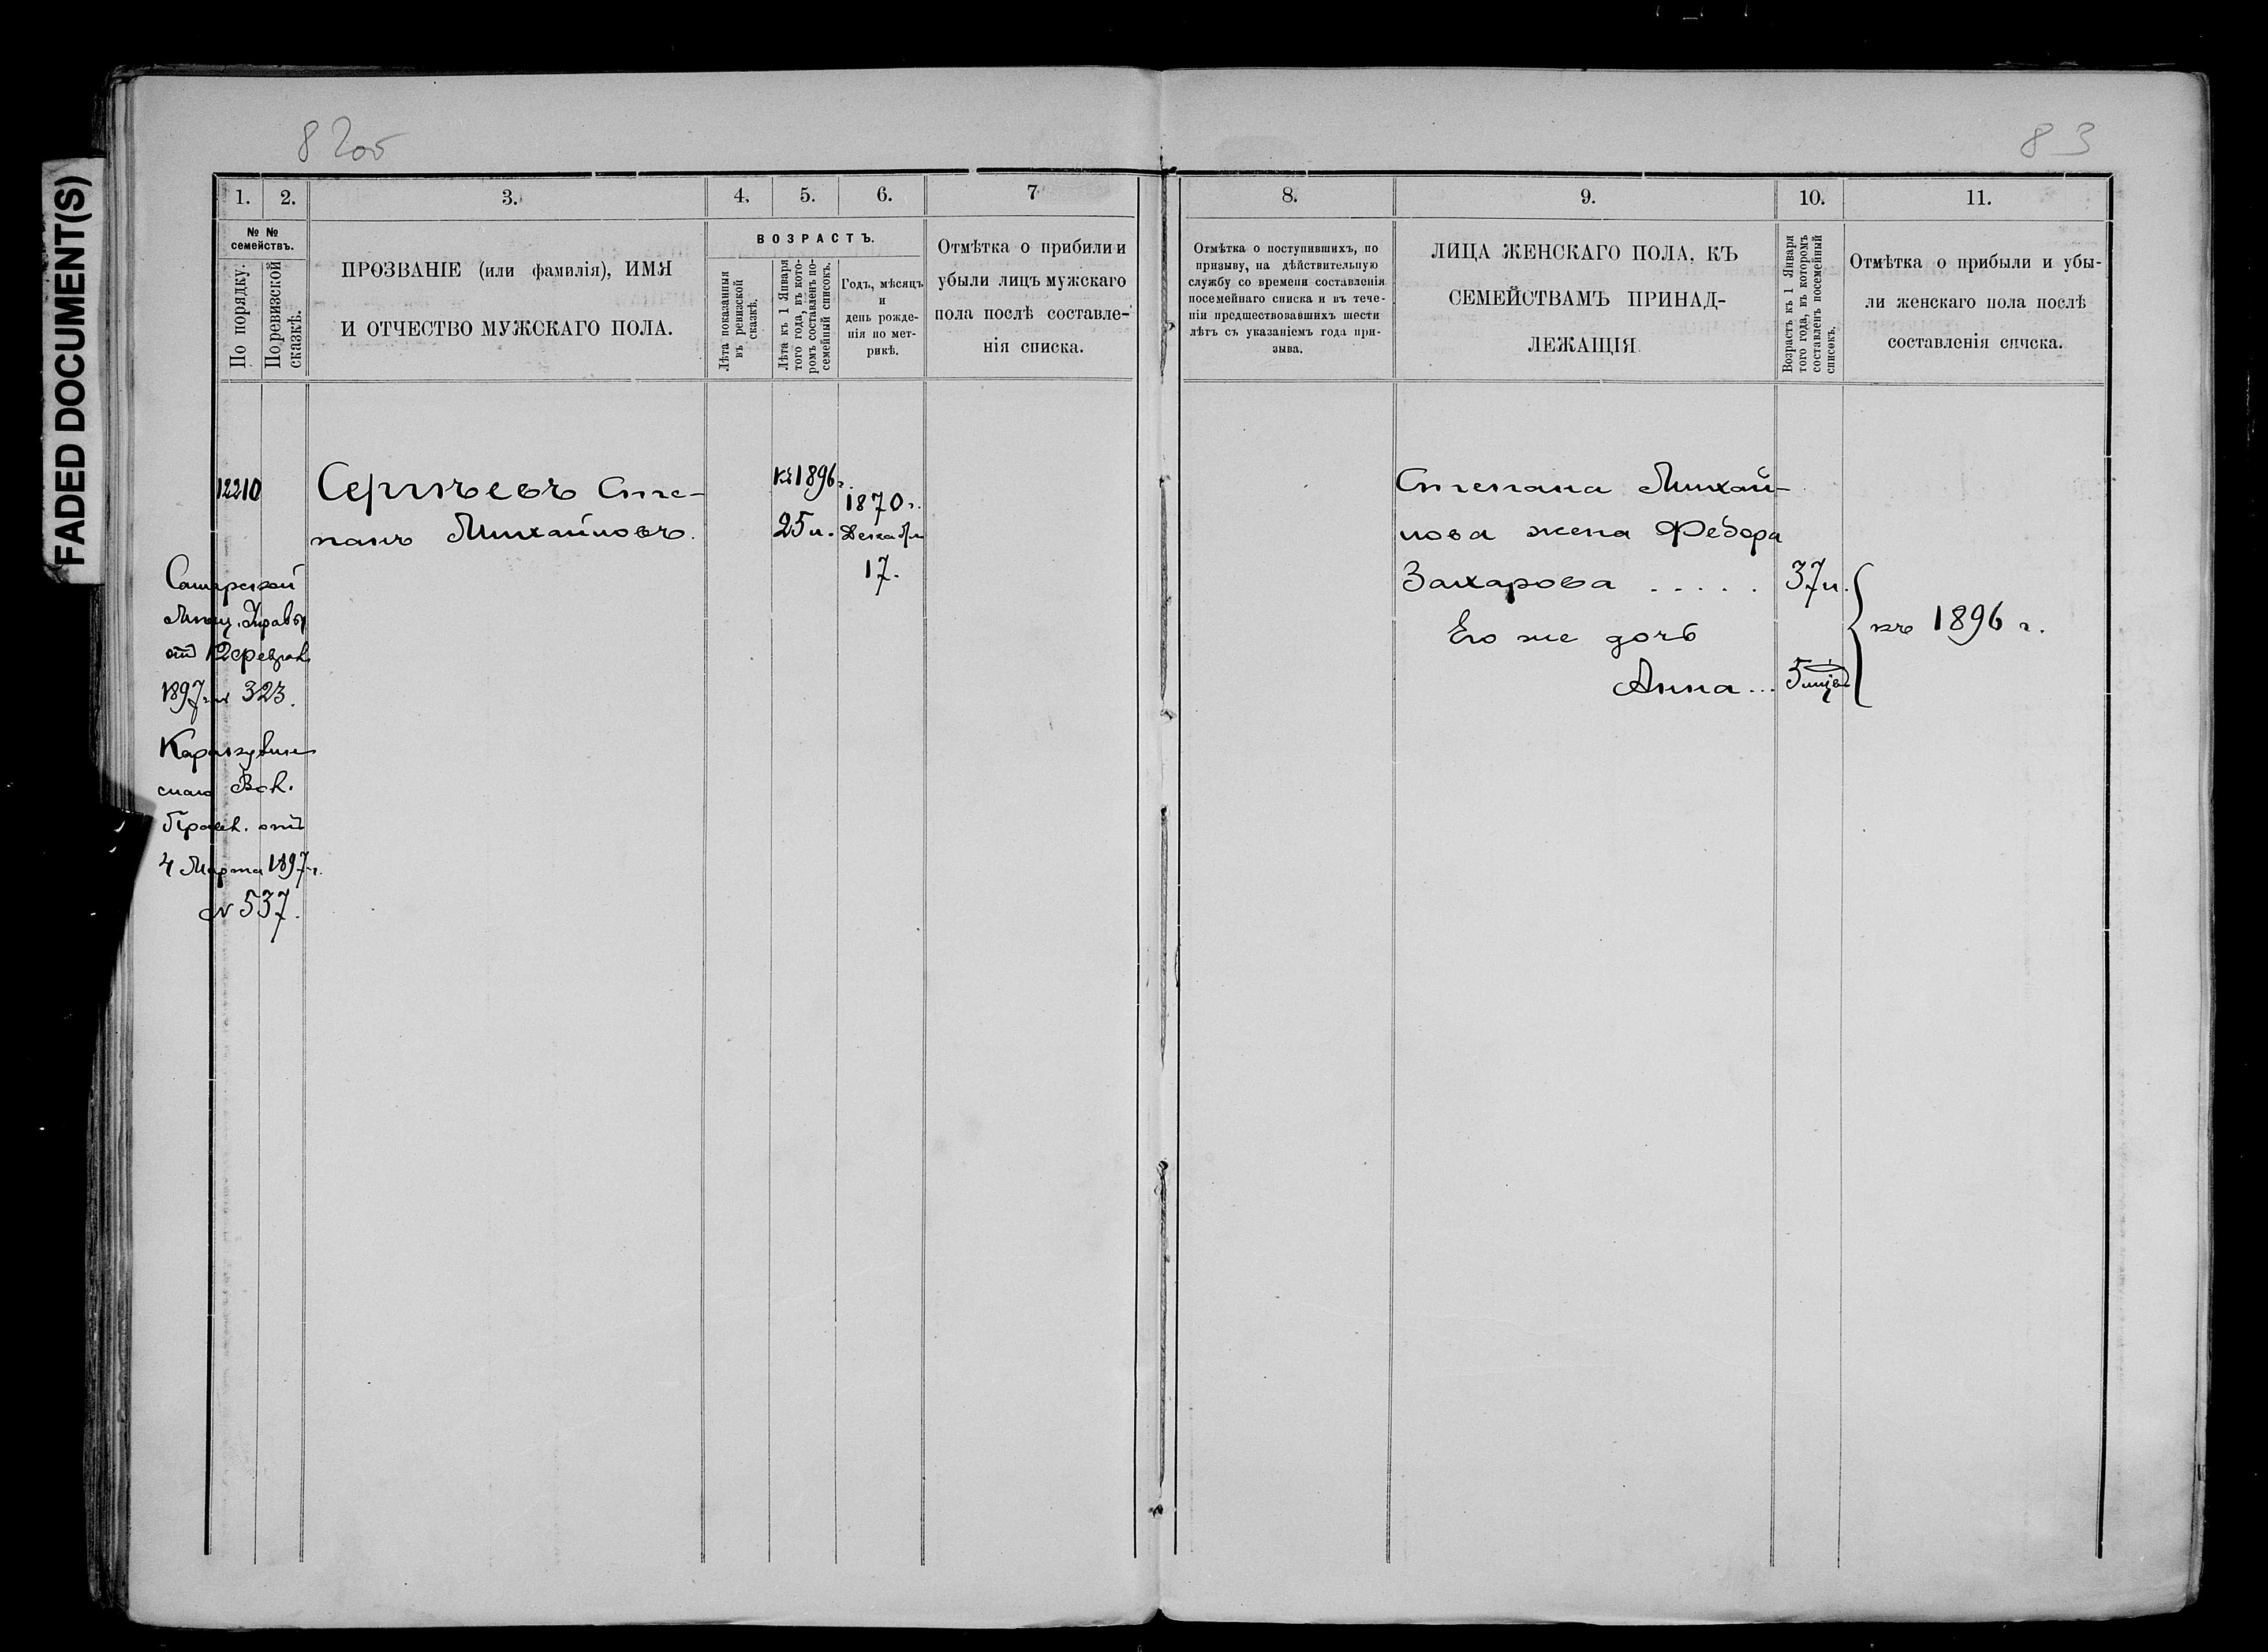 FADED DOCUMENT(S)
82об
83
1.
2.
3.
4.
5.
6.
7
8.
9.
10.
11.
№ №
семействъ.
По порядку.
По ревизской
сказкѣ.
ПРОЗВАНІЕ (или фамилія), ИМЯ
И ОТЧЕСТВО МУЖСКАГО ПОЛА.
ВОЗРАСТЪ.
Лѣта показанныя
въ ревизской
сказкѣ.
Лѣта къ 1 Января
того года, въ кото-
ромъ составленъ по-
семейный списокъ.
Годъ, мѣсяцъ
и
день рожде-
нія по мет-
рикѣ.
Отмѣтка о прибыли и
убыли лицъ мужскаго
пола послѣ составле-
нія списка.
Отмѣтка о поступившихъ, по
призыву, на дѣйствительную
службу со времени составленія
посемейнаго списка и въ тече-
ніи предшествовавшихъ шести
лѣтъ съ указаніемъ года при-
зыва.
ЛИЦА ЖЕНСКАГО ПОЛА, КЪ
СЕМЕЙСТВАМЪ ПРИНАД-
ЛЕЖАЩІЯ
Возрастъ къ 1 Января
того года, въ которомъ
составленъ посемейный
списокъ.
Отмѣтка о прибыли и убы-
ли женскаго пола послѣ
составленія списка.
12210
Сергѣевъ Сте-
панъ Михайловъ.
къ 1896 г.
25 л.
1870 г.
Декабря
17.
Самарской
Мѣщ. Управы
отъ 12 феврал
1897 г. № 323.
скаго Вол.
Правл. отъ
4 Марта 1897 г.
№ 537.
Степана Михай-
лова жена Федора
Захарова . . . . . 37 л.
Его же дочь
Анна ... 5 мѣс
къ 1896 г.